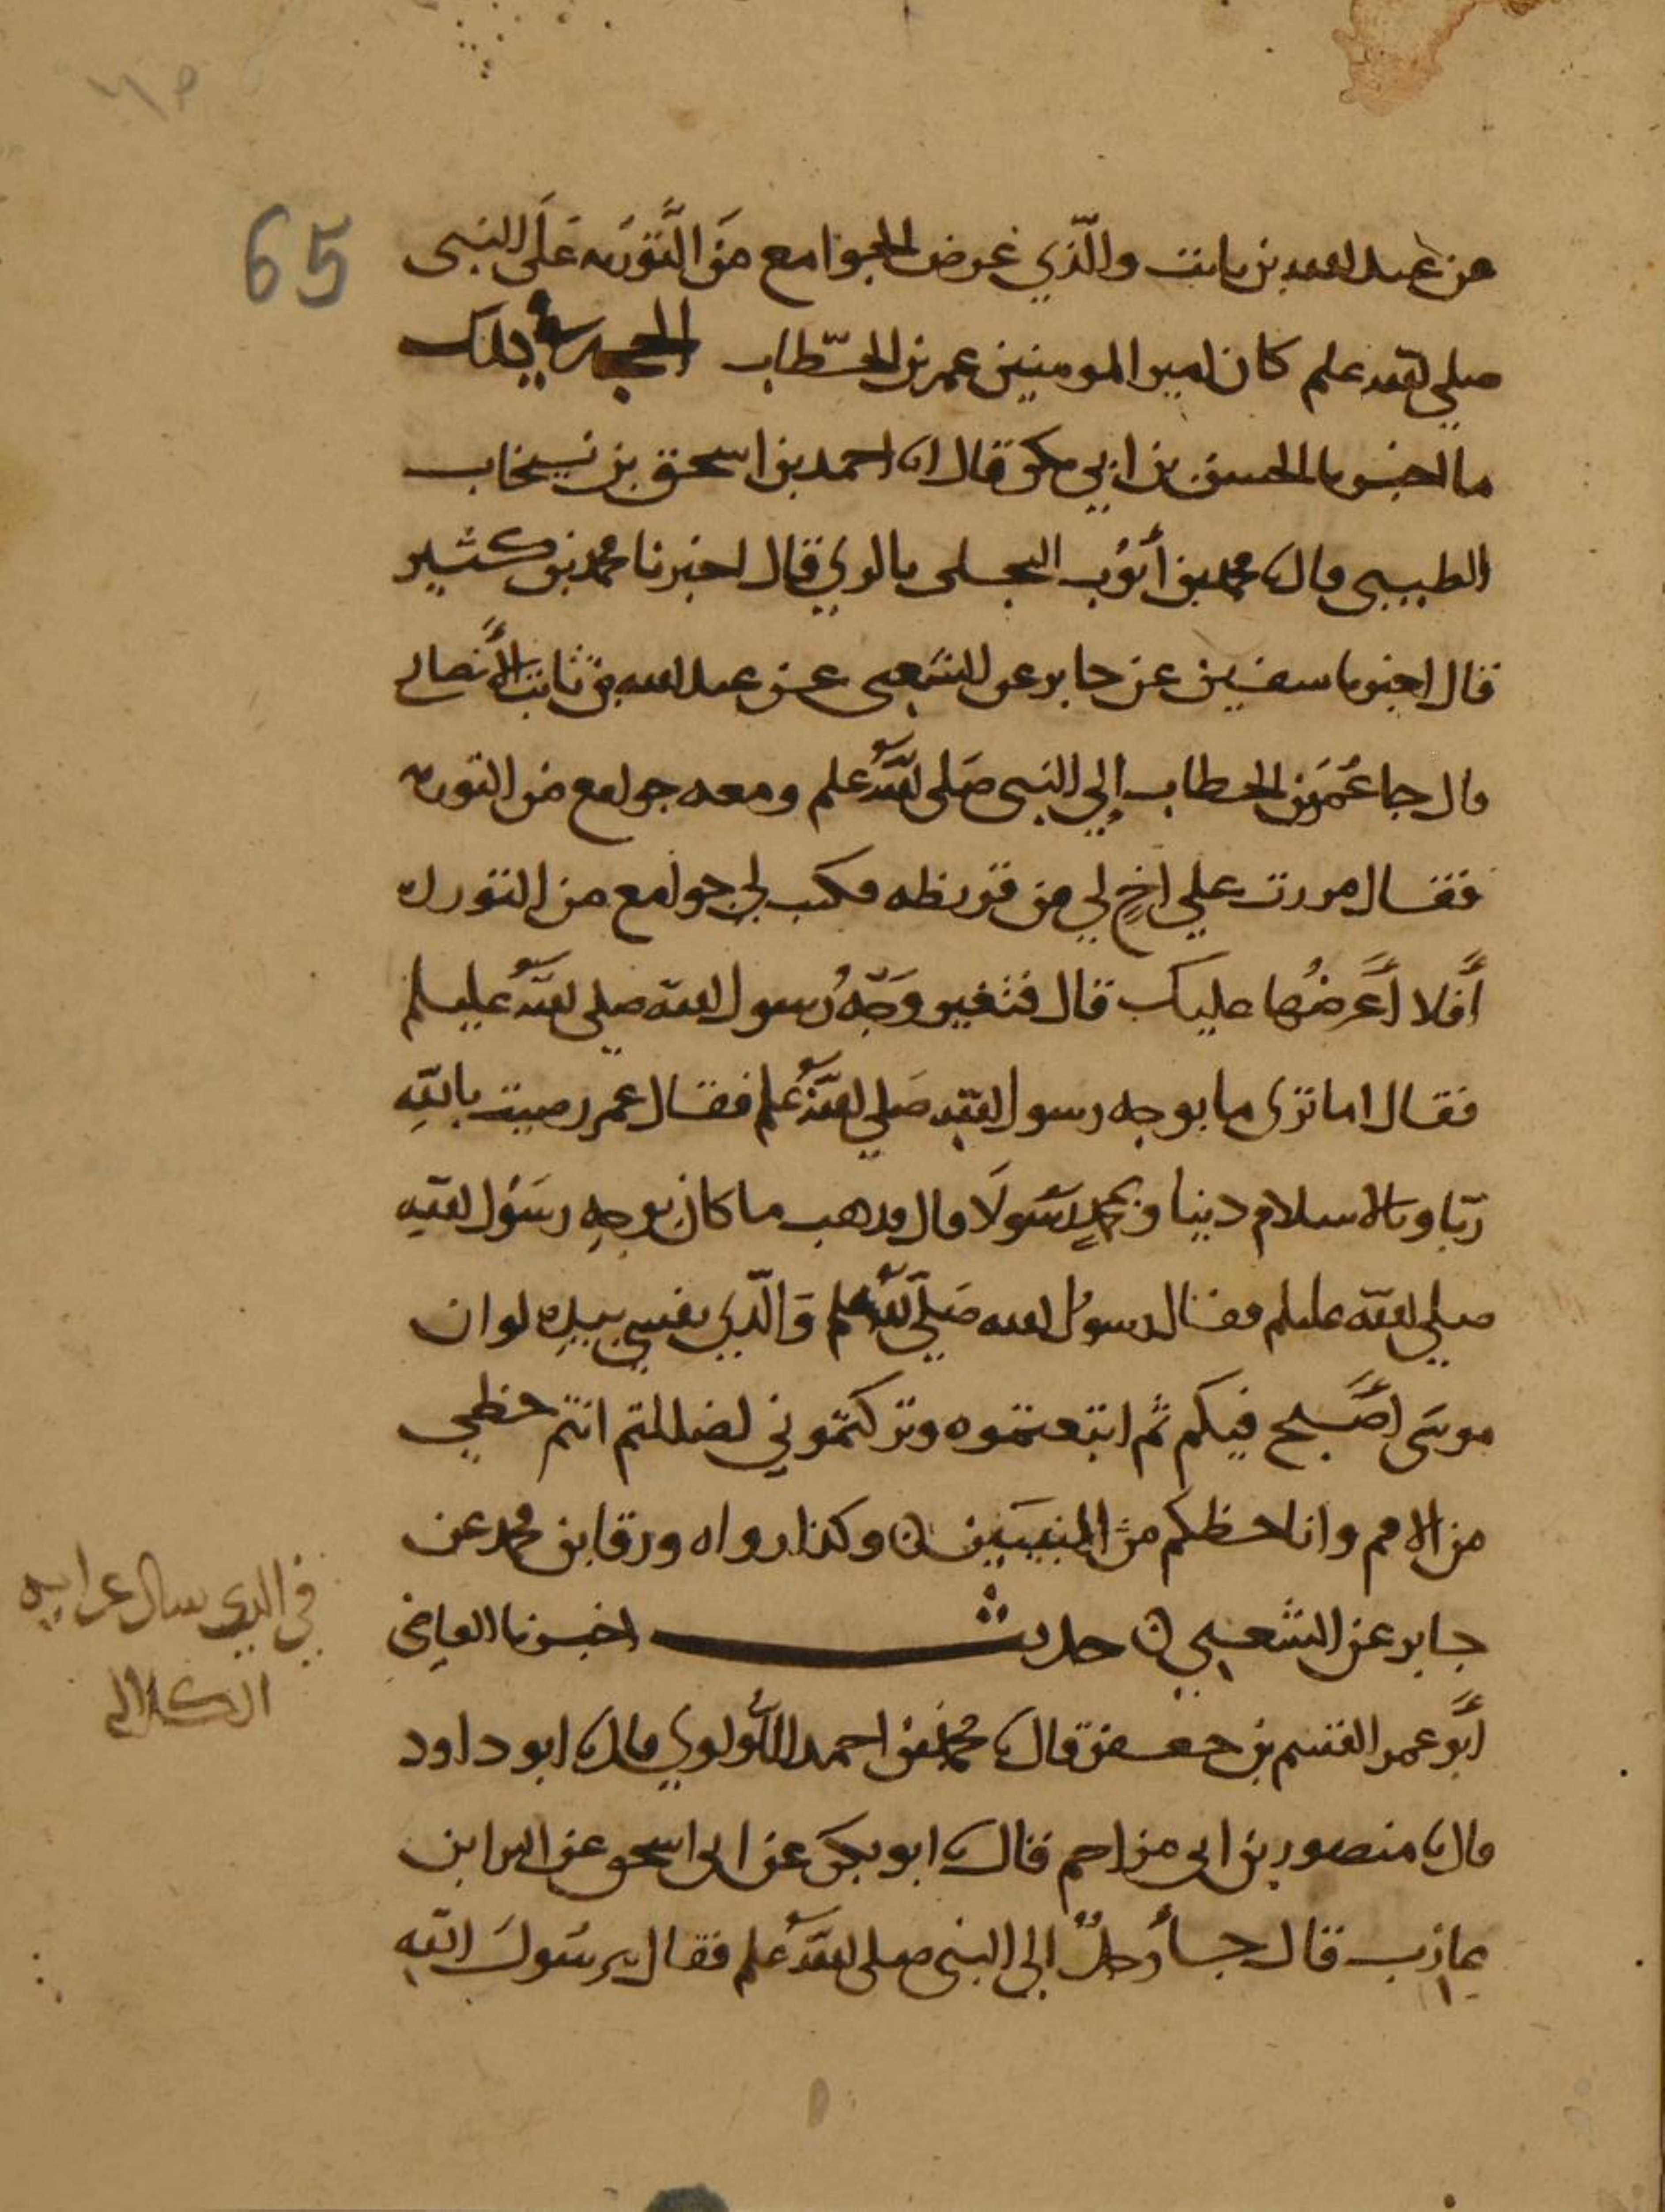 65
عن عبد الله بن ثابت والَّذي عَرض الجوامع منَ التَّوْرَىه عَلَى النبى
صلى الله علىه وسلم كان امير المومنين عمر بن الخطَّاب الحجه بذلك
ما اخبرنا الحسن بن ابي بكر قال انا احمد بن اسحق بن نيخاب
الطيبى قال نا محمد بن أيّوُب البجلى بالري قال اخبرنا محمد بن كثير
قال اخبرنا سفين عن جابر عن الشعبى عن عبد الله بن ثابت الأنصاري
قال جا عُمَر بن الخطاب إلي النبى صَلى اللهُ علىه وسلم ومعه جوامع من التوريه
فقال مررت علي اخٍ لي من قريظه فكتب لي جوامع من التوراه
أَفلا أَعَرضُها عليك قال فتغير وَجْهُ رسول الله صلى اللهُ عليه وسلم
فقال اما ترى ما بوجه رسول الله صَلي اللهُ علىه وسلم فقال عمر رضيت باللهِ
ربّا وبالاسلام دينا وبمحمدٍ رسُولَا قال فذهب ما كان بوجهِ رسَوُل اللهِ
صلي الله عليه وسلم فقال رسوُل الله صَلَي اللهُ علىه وسلم وَالَّذِي نفسي بيدِه لو ان
موسَى أَصَبح فيكم ثم اتبعتموه وتركتمّوني لضللتم انتم حظي
من الامم وانا حظكم من النبيَين ۞ وكذا رواه ورقا بن محمد عن
جابر عن الشعبي ۞ حديث اخبرنا القاضي
أَبُو عمر القسم بن جعفر قال نا محمد بن احمد اللؤلوي قال نا ابو داود
قال نا منصور بن ابى مزاحم قال نا ابو بكر عن ابى اسحق عن البرا بن
عازب قال جأ رجلٌ إلى النبى صلى اللهُ علىه وسلم فقال يرسَولَ اللهِ
في الذي سال عن ايه
الكلاله